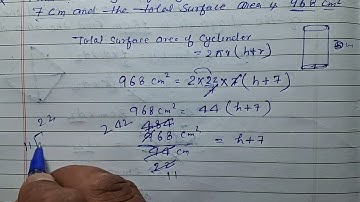 7 cm and the total surface area is 968 cm²
Total Surface area of Cylinder
= 2πr(h+r)
968 cm² = 2×22/7×7(h+7)
968 cm² = 44(h+7)
242 484
968 cm² / 44 cm = h+7
22
11
22
11